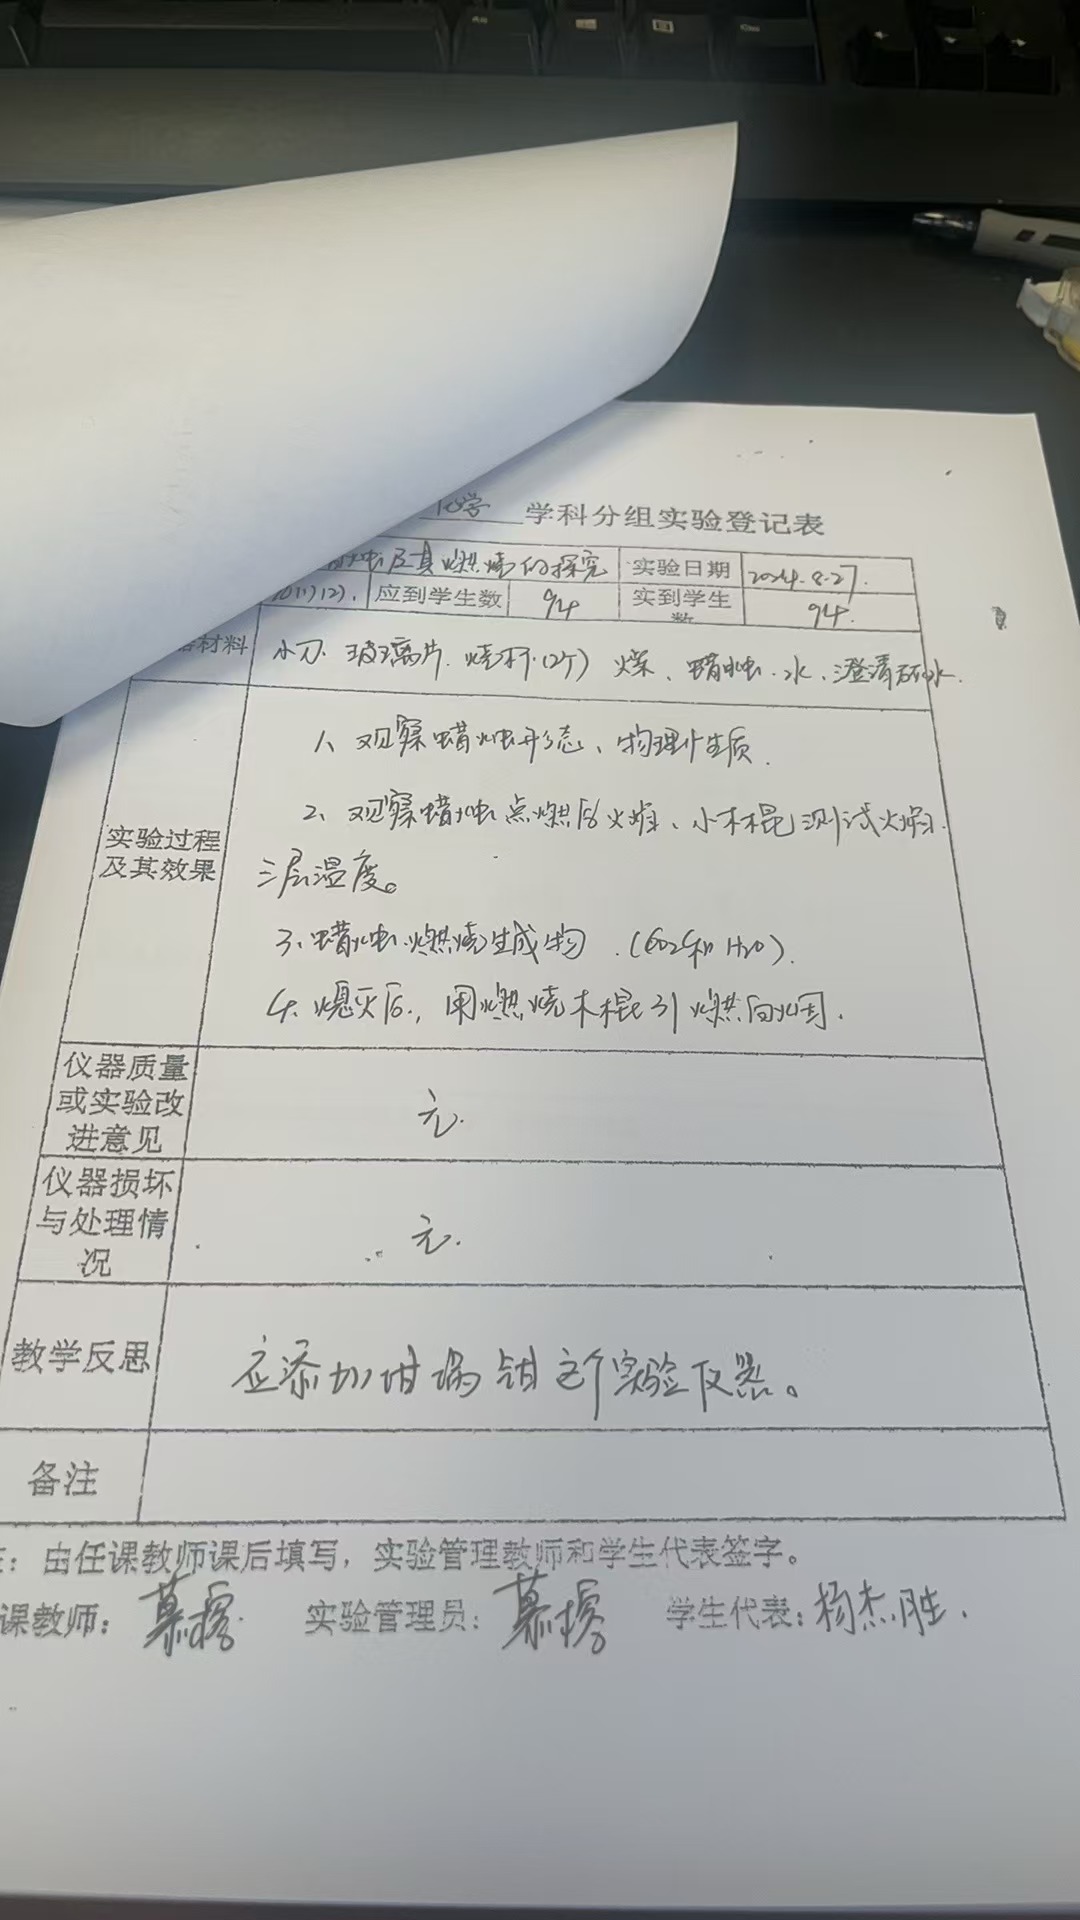 化学 学科分组实验登记表
蜡烛及其燃烧的探究 实验日期 2024.8.27.
(1)(2). 应到学生数 94 实到学生数 94.
材料 小刀. 玻璃片. 烧杯(2个) 、蜡烛.水、澄清石灰水.
实验过程及其效果
1、观察蜡烛形态、物理性质.
2、观察蜡烛点燃后火焰、小木棍测试火焰
三层温度。
3、蜡烛燃烧生成物.(CO2和H2O).
4、熄灭后,用燃烧木棍引燃白烟.
仪器质量
或实验改
进意见
无.
仪器损坏
与处理情
况
无.
教学反思 应添加坩埚钳这个实验仪器。
备注
：由任课教师课后填写，实验管理教师和学生代表签字。
课教师： 实验管理员： 学生代表：杨杰胜.